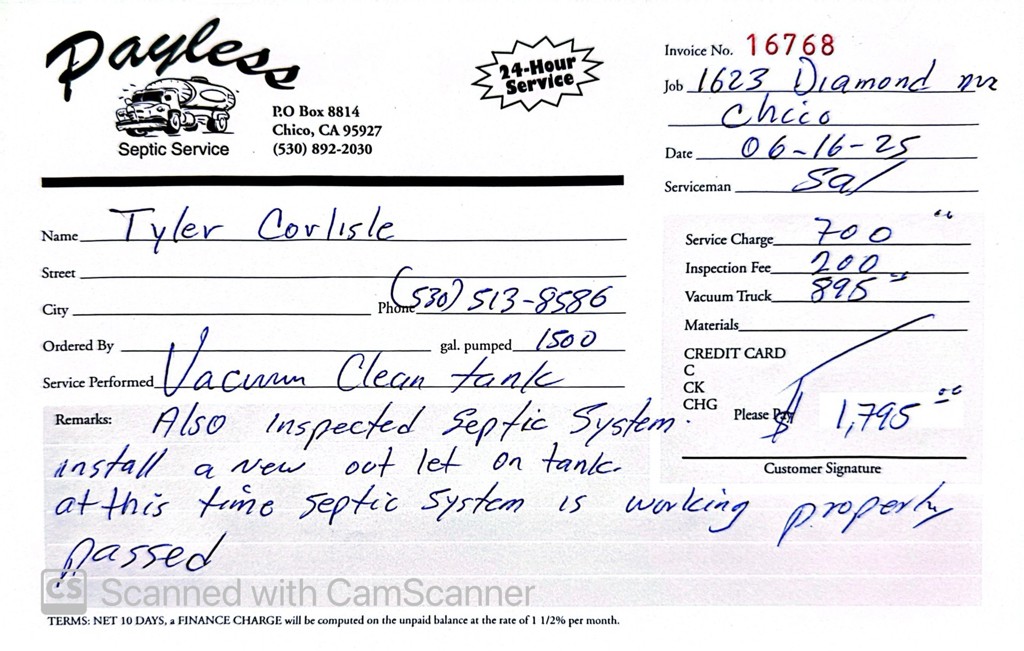 Payless
Septic Service
P.O Box 8814
Chico, CA 95927
(530) 892-2030
24-Hour
Service
Invoice No. 16768
Job 1623 Diamond Ave
Chico
Date 06-16-25
Serviceman Sal
Name Tyler Corlisle
Street
City
Phone (530) 513-8586
Ordered By
gal. pumped 1500
Service Performed Vacuum Clean tank
Remarks: Also inspected Septic System.
install a new out let on tank.
at this time septic system is working properly
passed
Service Charge 700 00
Inspection Fee 200
Vacuum Truck 895 00
Materials
CREDIT CARD
C
CK
CHG
Please Pay $ 1,795 00
Customer Signature
CS Scanned with CamScanner
TERMS: NET 10 DAYS, a FINANCE CHARGE will be computed on the unpaid balance at the rate of 1 1/2% per month.